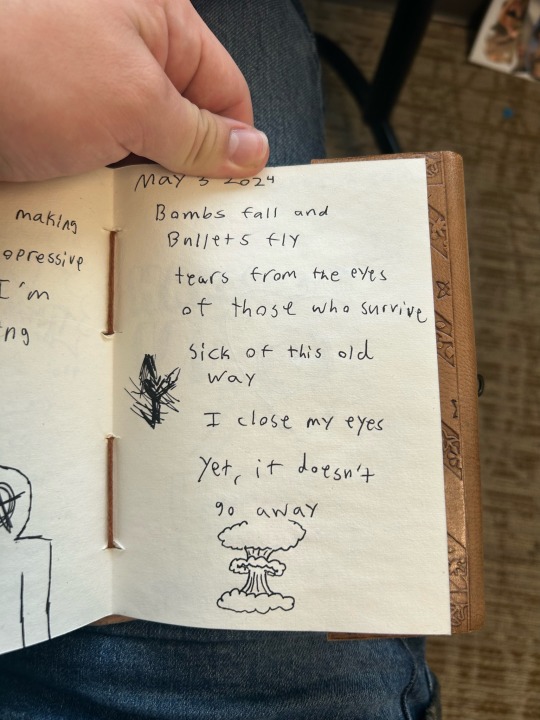 making
opressive
I'm
ng
May 3 2024
Bombs fall and
Bullets fly
tears from the eyes
of those who survive
sick of this old
way
I close my eyes
Yet, it doesn't
go away